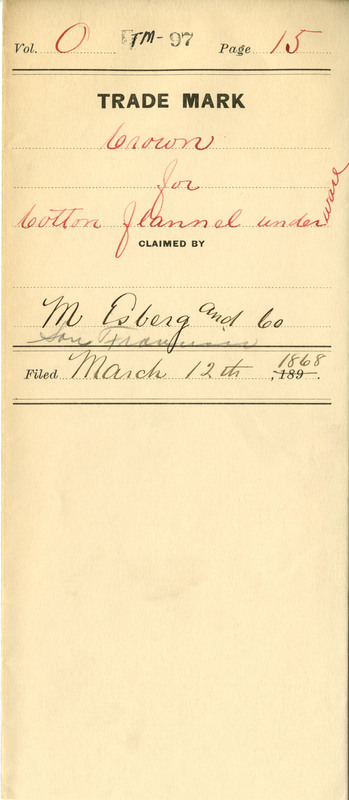 Vol. O TM-97 Page 15
TRADE MARK
Crown
for
Cotton flannel underware
CLAIMED BY
M Esberg and Co
San Francisco
Filed March 12th, 1868
189 .